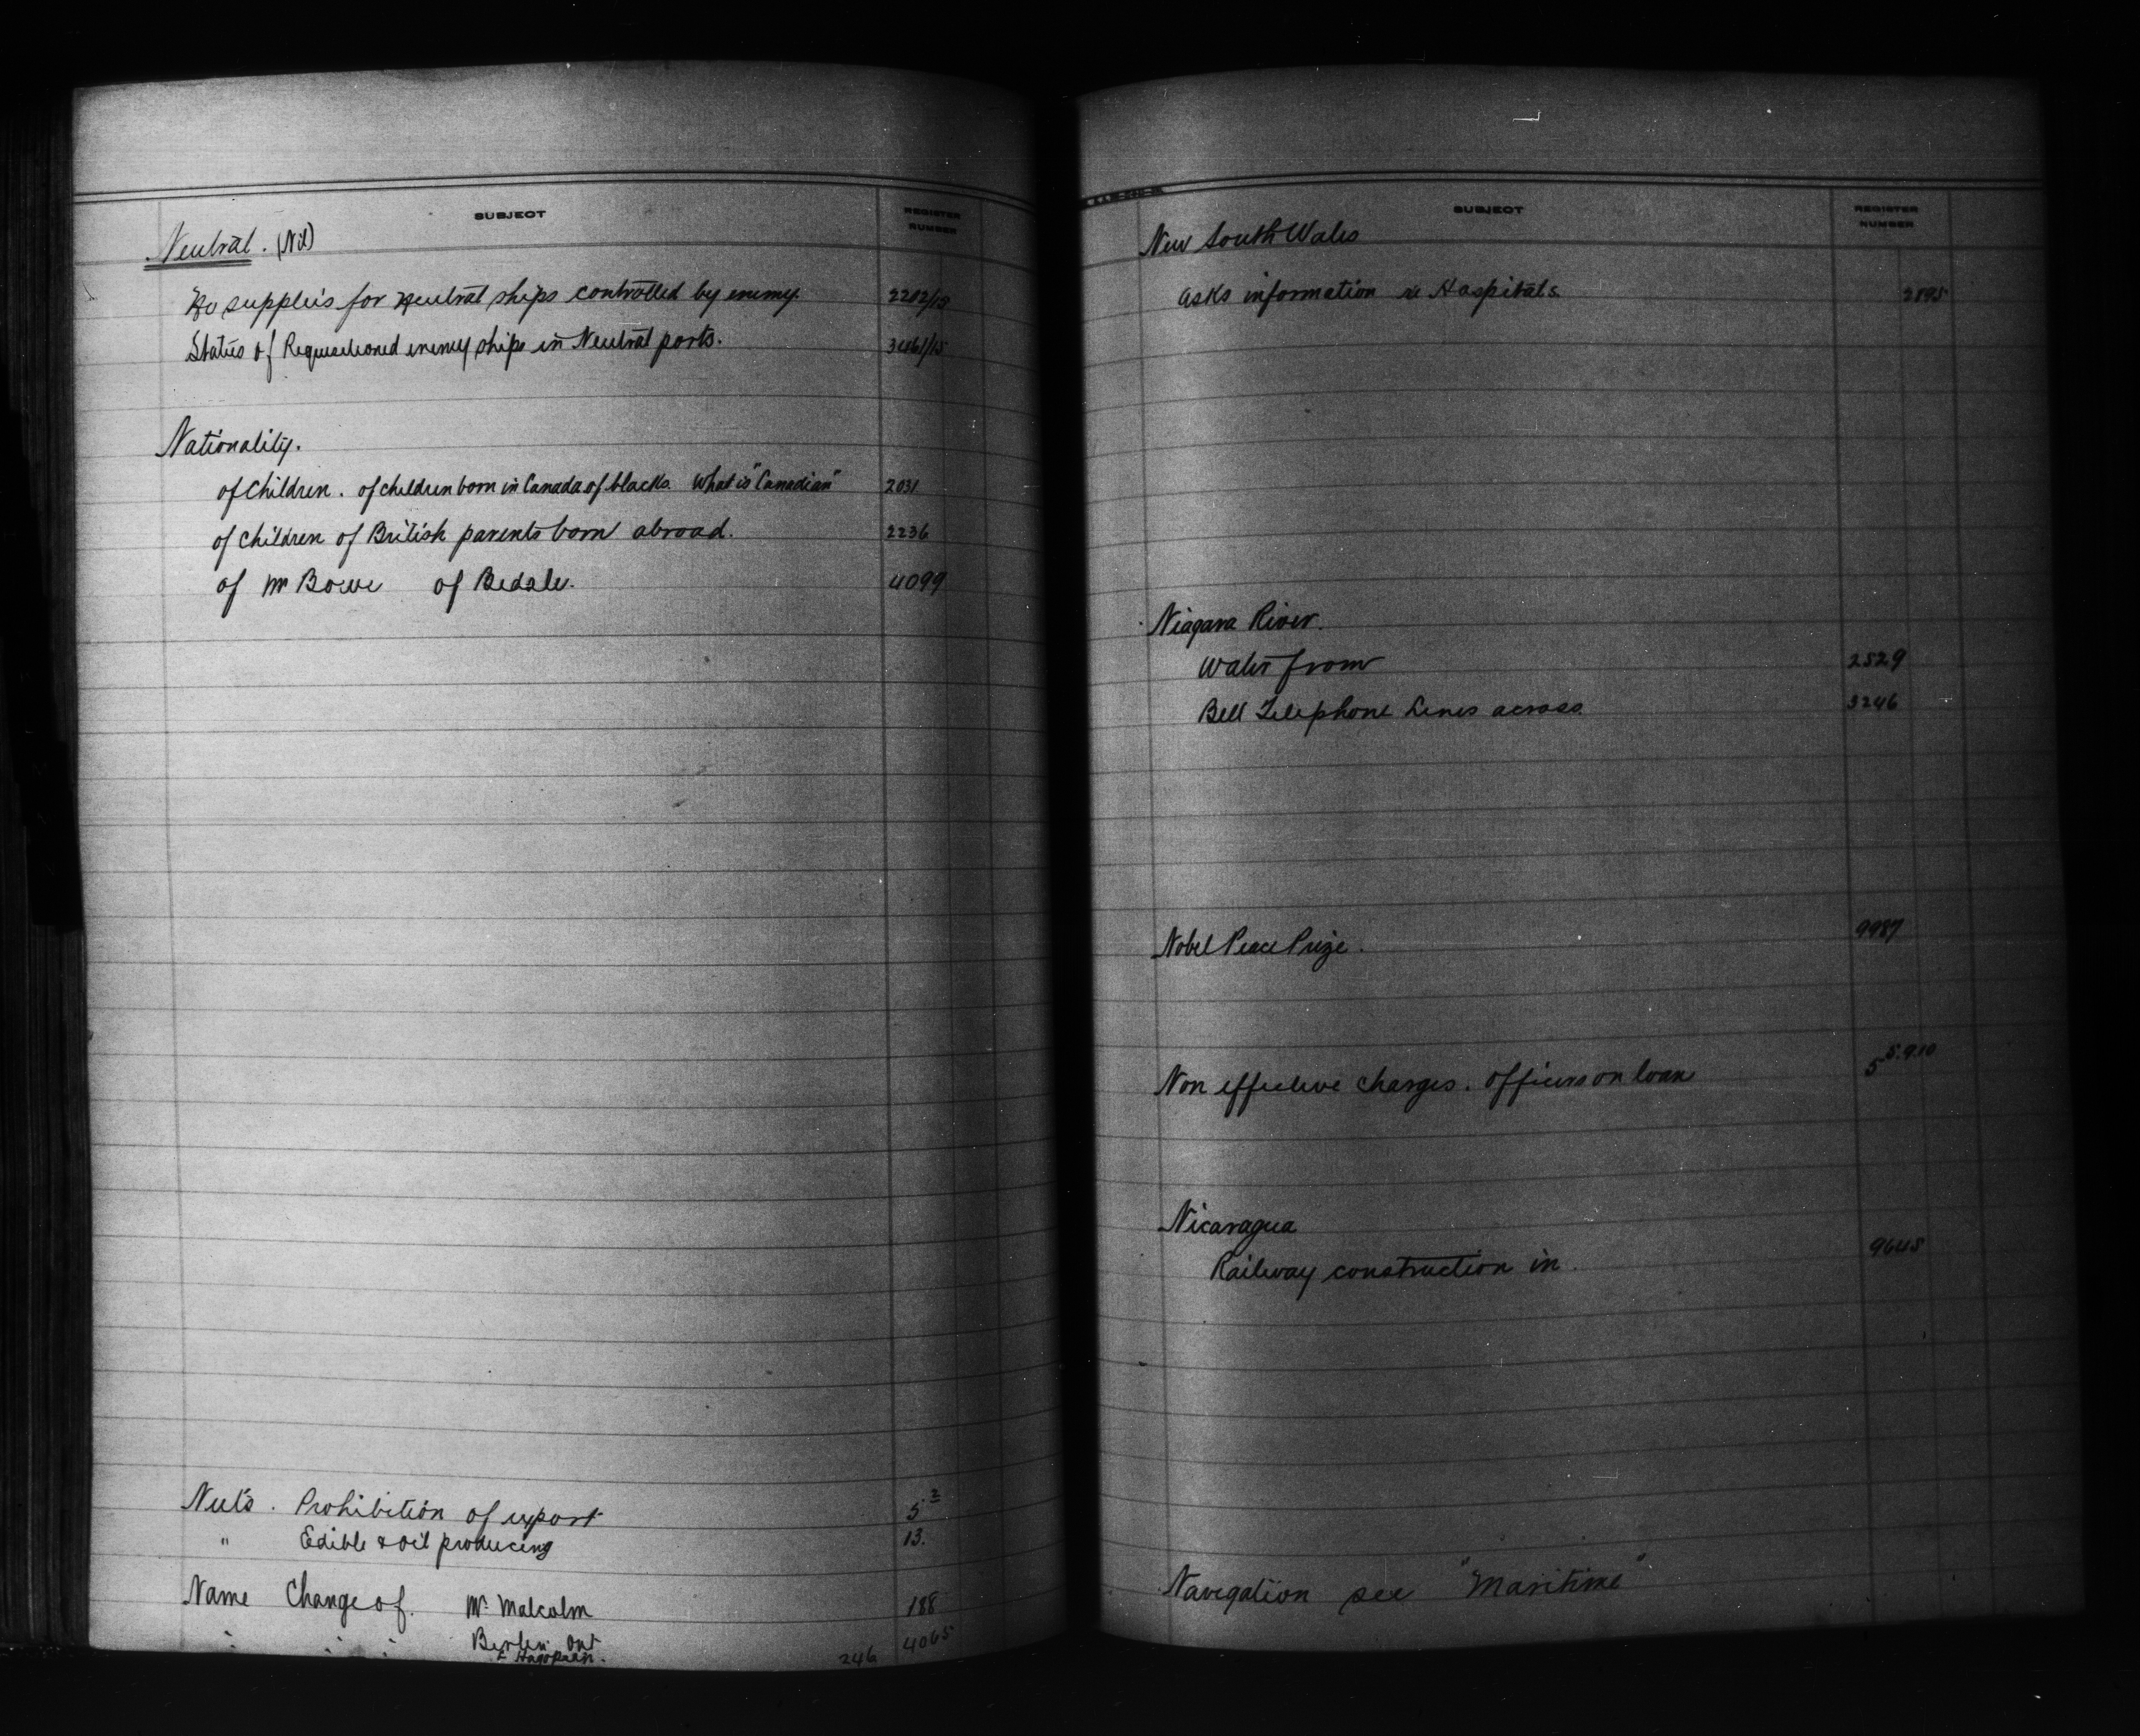 SUBJECT
REGISTER
NUMBER
Neutral. (Nil)
No supplies for Neutral ships controlled by enemy. 2202/15
Status of Requisitioned enemy ships in Neutral ports. 3461/15
Nationality.
of Children. of children born in Canada of blacks. What is "Canadian" 2031
of Children of British parents born abroad. 2236
of Mr Bowe of Bedale. 4099
Nuts. Prohibition of export 5 2
" Edible & oil producing 13.
Name Change of. Mr. Malcolm 188
" " " Berlin. Ont 4065
246
SUBJECT
REGISTER
NUMBER
New South Wales
Asks information re Hospitals. 2895
Niagara River.
Water from 2529
Bell Telephone Lines across. 3246
Nobel Peace Prize. 9987
Non effective charges. Officers on loan 5 5.9.10
Nicaragua
Railway construction in. 9645
Navigation see "Maritime"